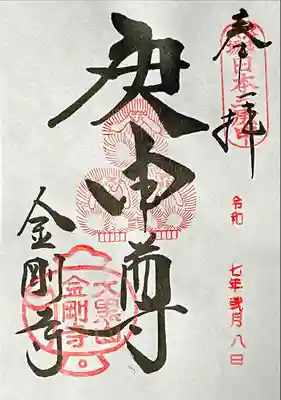 奉拝
日本三庚申
令和 七年 弐月 八日
庚申尊
大黒山
金剛寺
金剛寺